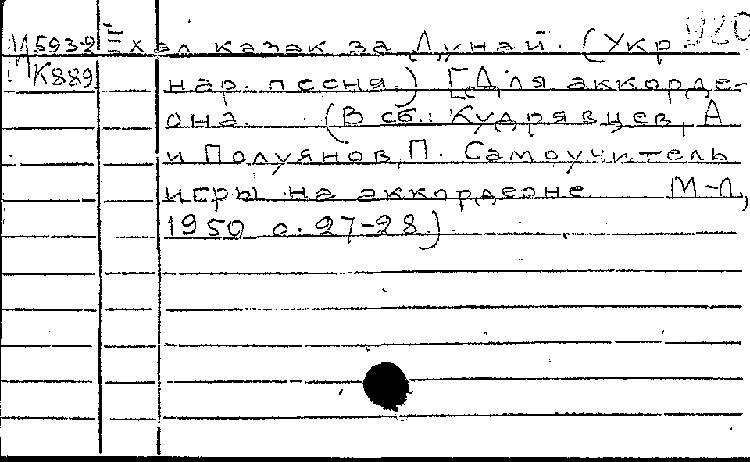 М593-2 Ехал казак за Дунай. (Укр.
К889 нар. песня.) [Для аккорде-
она. (В сб.: Кудрявцев, А
и Полуянов, П. Самоучитель
игры на аккордеоне М-Л,
1950 с. 27-28.)